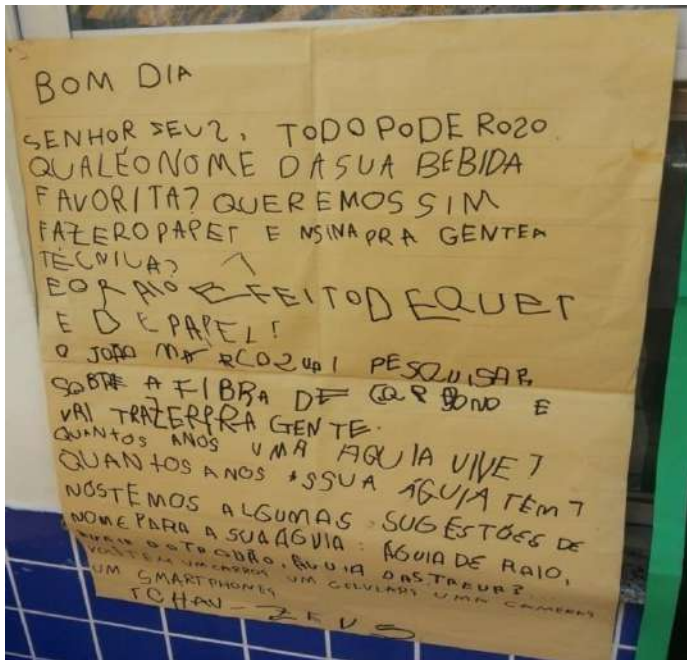 BOM DIA
SENHOR ZEUS, TODO PODEROZO.
QUALÉONOME DASUA BEBIDA
FAVORITA? QUEREMOS SIM
FAZEROPAPEL ENSINA PRA GENTEA
TÉCNICA?
EORAIO É FEITODEQUET
E DE PAPEL?
O JOÃO MARCOZVAI PESQUISAR
SOBRE A FIBRA DE CARBONO E
VAI TRAZERPRA GENTE.
QUANTOS ANOS UMA AGUIA VIVE?
QUANTOS ANOS ASSUA ÁGUIA TEM?
NÓSTEMOS ALGUMAS SUGESTÕES DE
NOME PARA A SUAÁGUIA: ÁGUIA DE RAIO,
DOTROVÃO, ÁGUIA DAS
VOSTEM UM CARROS UM CELULARS UMA CAMERAS
UM SMARTPHONES
TCHAU-ZEUS